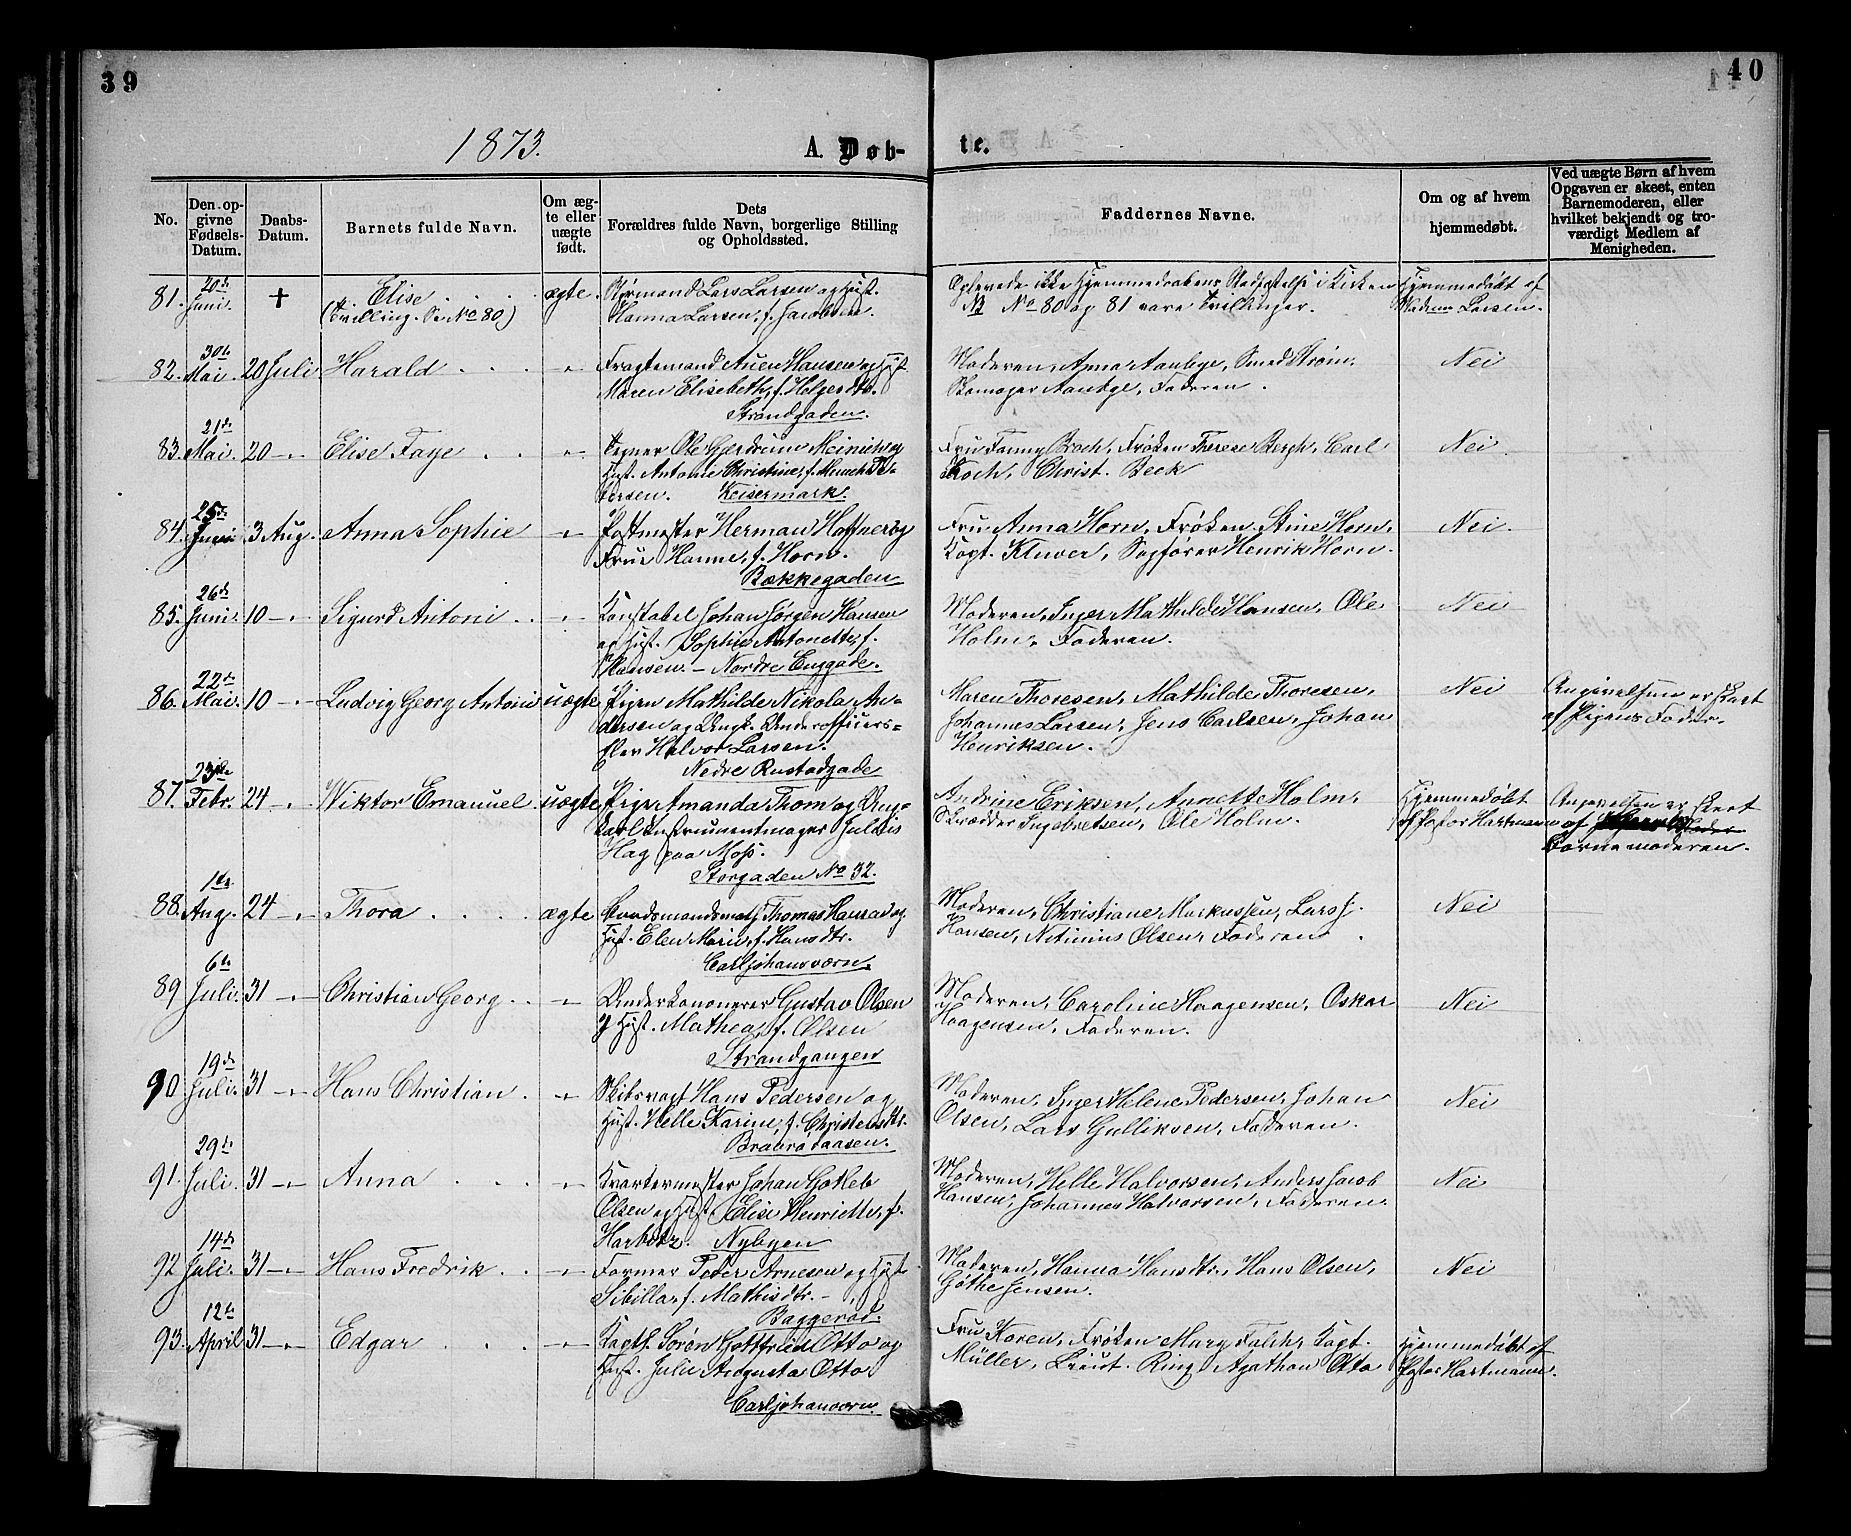 39
40
1873.
A. Døb-
te.
No.
Den opgivne Fødsels-Datum.
Daabs-Datum.
Barnets fulde Navn.
Om ægte eller uægte født.
Dets
Forældres fulde Navn, borgerlige Stilling
og Opholdssted.
Faddernes Navne.
Om og af hvem
hjemmedøbt.
Ved uægte Børn af hvem
Opgaven er skeet, enten
Barnemoderen, eller
hvilket bekjendt og tro-
værdigt Medlem af
Menigheden.
81. 20de Juni. + Elise ægte Styrmand Lars Larsen og Hust.
(Tvilling. Se No 80) Hanna Larsen, f. Jacobsen
Oplevede ikke Hjemmedaabens Stadfæstelse i Kirken
NB No 80 og 81 vare Tvillinger.
Hjemmedøbt af
Madam Larsen.
82. 30te Mai. 20 Juli Harald - " - Fragtemand Auen Hansen og Hust.
Maren Elisabeth, f. Helgesdtr.
Strandgaden.
Moderen, Anna Aanbye, Smed Strøm,
Skomager Aanbye, Faderen.
Nei
83. 21de Mai. 20 - " - Elise Faye - " - Tegner Ole Gjerdrum Meinich og
Hust. Antonie Christine, f. Munch Pe-
tersen. Keisermark.
Fru Fanny Koch, Frøken Therese Bergh, Carl
Koch, Christ. Beck
Nei
84. 25de Juni 3 Aug. Anna Sophie - " - Postmester Herman Haffner og
Frue Hanne, f. Horn.
Bækkegaden
Fru Anna Horn, Frøken Stine Horn,
Kapt. Kluver, Sagfører Henrik Horn.
Nei
85. 26de Juni. 10 - " - Sigurd Antoni - " - Konstabel Johan Jørgen Hansen
og Hust. Sophie Antonette, f.
Hansen. - Nordre Enggade.
Moderen, Inger Mathilde Hansen, Ole
Holm, Faderen.
Nei
86. 22de Mai. 10 - " - Ludvig Georg Antoni uægte Pigen Mathilde Nikola An-
dersen og Ungk. Underofficers-
elev Halvor Larsen.
Nedre Rustadgade
Maren Thoresen, Mathilde Thoresen,
Johannes Larsen, Jens Carlsen, Johan
Henriksen.
Nei
Angivelsen er skeet
af Pigens Fader.
87. 23de Febr. 24 - " - Wiktor Emanuel uægte Pige Amanda Thom og Ung-
karl Instrumentmager Julius
Hag paa Moss.
Storgaden No 32.
Andrine Eriksen, Annette Holm,
Skrædder Ingebretsen, Ole Holm.
Hjemmedøbt
af Pastor Hartmann
Angivelsen er skeet
af
Barnemoderen.
88. 1ste Aug. 24 - " - Thora ægte Thomas Hansen og
Hust. Elen Marie, f. Hansdtr.
Carljohansværn.
Moderen, Christiane Markussen, Lars J.
Hansen, Nitinius Olsen, Faderen.
Nei
89 6te Juli. 31 - " - Christian Georg - " - Underkanoneer Gustav Olsen
og Hust. Mathea, f. Olsen
Strandgangen
Moderen, Caroline Haagensen, Oskar
Haagensen, Faderen.
Nei
90 19de Juli. 31 - " - Hans Christian - " - Skibsvagt Hans Pedersen og
Hust. Helle Karine, f. Christensdtr.
Braaraadaasen.
Moderen, Inger Helene Pedersen, Johan
Olsen, Lars Gulliksen, Faderen.
Nei
91. 29de Juli. 31 - " - Anna - " - Kvartermester Johan Gotleb
Olsen og Hust. Elise Henriette, f.
Harbitz. Nybyen
Moderen, Helle Halvorsen, Anders Jacob
Hansen, Johannes Halvorsen, Faderen.
Nei
92 14de Juli. 31 - " - Hans Fredrik - " - Former Peder Arnesen og Hust.
Sibilla, f. Mathisdtr. -
Baggerød.
Moderen, Hanna Hansdtr., Hans Olsen,
Gøthe Jensen.
Nei
93. 12te April 31 - " - Edgar - " - Kapt. Søren Gottfried Otto og
Hust. Julie Augusta Otto
Carljohansværn.
Fru Koren, Frøken Mary Falch, Kapt.
Müller, Leiut. Ring, Agathon Otto
Hjemmedøbt af
Pastor Hartmann.